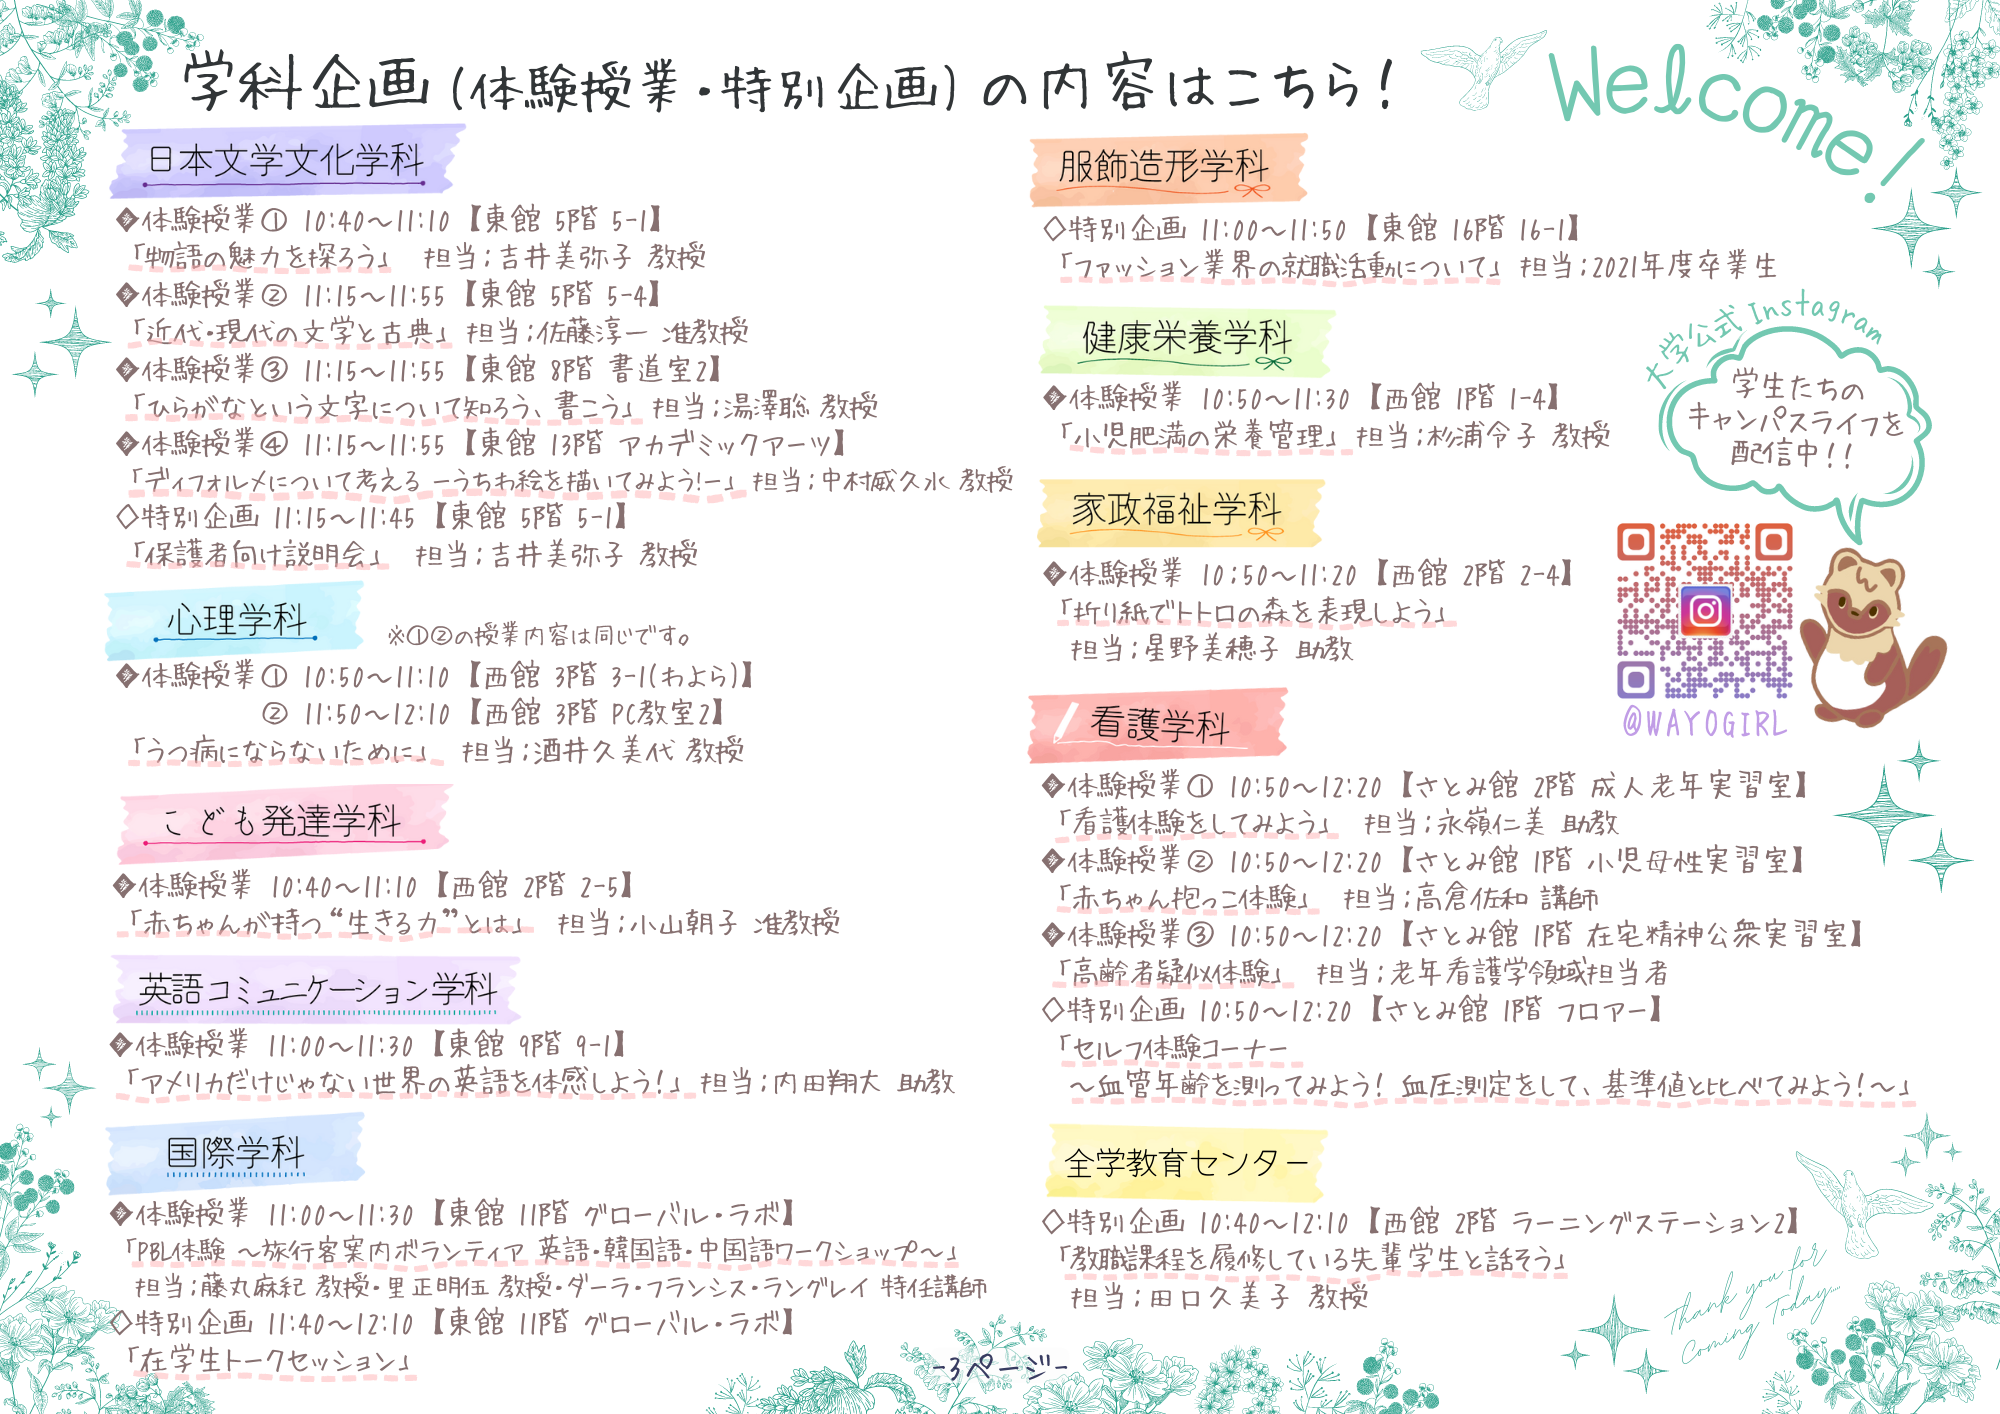 学科企画(体験授業・特別企画)の内容はこちら!
Welcome!
日本文学文化学科
◆体験授業① 10:40〜11:10【東館 5階 5-1】
「物語の魅力を探ろう」 担当:吉井美弥子 教授
◆体験授業② 11:15〜11:55【東館 5階 5-4】
「近代・現代の文学と古典」 担当:佐藤淳一 准教授
◆体験授業③ 11:15〜11:55【東館 8階 書道室2】
「ひらがなという文字について知ろう、書こう」 担当:湯澤聡 教授
◆体験授業④ 11:15〜11:55【東館 13階 アカデミックアーツ】
「ディフォルメについて考える ーうちわ絵を描いてみよう!ー」 担当:中村威久水 教授
◇特別企画 11:15〜11:45【東館 5階 5-1】
「保護者向け説明会」 担当:吉井美弥子 教授
心理学科
※①②の授業内容は同じです。
◆体験授業① 10:50〜11:10【西館 3階 3-1(わよら)】
② 11:50〜12:10【西館 3階 PC教室2】
「うつ病にならないために」 担当:酒井久美代 教授
こども発達学科
◆体験授業 10:40〜11:10【西館 2階 2-5】
「赤ちゃんが持つ“生きる力”とは」 担当:小山朝子 准教授
英語コミュニケーション学科
◆体験授業 11:00〜11:30【東館 9階 9-1】
「アメリカだけじゃない世界の英語を体感しよう!」 担当:内田翔大 助教
国際学科
◆体験授業 11:00〜11:30【東館 11階 グローバル・ラボ】
「PBL体験 〜旅行客案内ボランティア 英語・韓国語・中国語ワークショップ〜」
担当:藤丸麻紀 教授・里正明伍 教授・ダーラ・フランシス・ラングレイ 特任講師
◇特別企画 11:40〜12:10【東館 11階 グローバル・ラボ】
「在学生トークセッション」
服飾造形学科
◇特別企画 11:00〜11:50【東館 16階 16-1】
「ファッション業界の就職活動について」 担当:2021年度卒業生
健康栄養学科
◆体験授業 10:50〜11:30【西館 1階 1-4】
「小児肥満の栄養管理」 担当:杉浦令子 教授
家政福祉学科
◆体験授業 10:50〜11:20【西館 2階 2-4】
「折り紙でトトロの森を表現しよう」
担当:星野美穂子 助教
大学公式 Instagram
学生たちの
キャンパスライフを
配信中!!
@WAYOGIRL
看護学科
◆体験授業① 10:50〜12:20【さとみ館 2階 成人老年実習室】
「看護体験をしてみよう」 担当:永嶺仁美 助教
◆体験授業② 10:50〜12:20【さとみ館 1階 小児母性実習室】
「赤ちゃん抱っこ体験」 担当:高倉佐和 講師
◆体験授業③ 10:50〜12:20【さとみ館 1階 在宅精神公衆実習室】
「高齢者疑似体験」 担当:老年看護学領域担当者
◇特別企画 10:50〜12:20【さとみ館 1階 フロアー】
「セルフ体験コーナー
〜血管年齢を測ってみよう! 血圧測定をして、基準値と比べてみよう!〜」
全学教育センター
◇特別企画 10:40〜12:10【西館 2階 ラーニングステーション2】
「教職課程を履修している先輩学生と話そう」
担当:田口久美子 教授
Thank you for
Coming Today...
-3ページ-